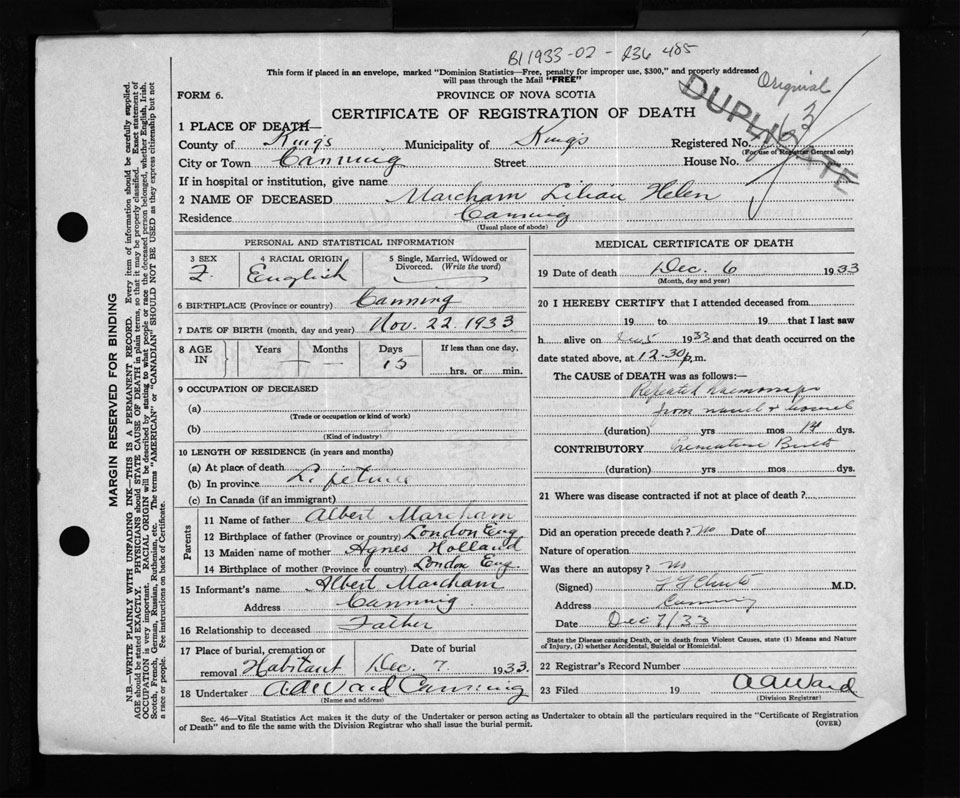 B11933-02-236485
This form if placed in an envelope, marked "Dominion Statistics—Free, penalty for improper use, $300," and properly addressed
will pass through the Mail "FREE"
Original
DUPLICATE
63
FORM 6.
PROVINCE OF NOVA SCOTIA
CERTIFICATE OF REGISTRATION OF DEATH
1 PLACE OF DEATH—
County of King's Municipality of King's Registered No.
(For use of Registrar General only)
City or Town Canning Street House No.
If in hospital or institution, give name
2 NAME OF DECEASED Marcham Lilian Helen
Residence Canning
(Usual place of abode)
PERSONAL AND STATISTICAL INFORMATION
3 SEX 4 RACIAL ORIGIN 5 Single, Married, Widowed or
Divorced. (Write the word)
F. English
6 BIRTHPLACE (Province or country) Canning
7 DATE OF BIRTH (month, day and year) Nov. 22. 1933
8 AGE IN Years Months Days If less than one day,
15 hrs. or min.
9 OCCUPATION OF DECEASED
(a)
(Trade or occupation or kind of work)
(b)
(Kind of industry)
10 LENGTH OF RESIDENCE (in years and months)
(a) At place of death
(b) In province Lifetime
(c) In Canada (if an immigrant)
Parents
11 Name of father Albert Marcham
12 Birthplace of father (Province or country) London Eng
13 Maiden name of mother Agnes Holland
14 Birthplace of mother (Province or country) London Eng.
15 Informant's name Albert Marcham
Address Canning.
16 Relationship to deceased Father
17 Place of burial, cremation or Date of burial
removal Habitant Dec. 7. 1933.
18 Undertaker A A Ward Canning
(Name and address)
MEDICAL CERTIFICATE OF DEATH
19 Date of death Dec. 6 1933
(Month, day and year)
20 I HEREBY CERTIFY that I attended deceased from
19 to 19 that I last saw
h alive on 1933 and that death occurred on the
date stated above, at 12-30 p.m.
The CAUSE of DEATH was as follows:—
Repeated haemorrage
from navel &
(duration) yrs mos 14 dys.
CONTRIBUTORY Premature Birth
(duration) yrs mos dys.
21 Where was disease contracted if not at place of death?
Did an operation precede death? No Date of
Nature of operation
Was there an autopsy? No
(Signed) M.D.
Address Canning
Date Dec 7/33
State the Disease causing Death, or in death from Violent Causes, state (1) Means and Nature
of Injury, (2) whether Accidental, Suicidal or Homicidal.
22 Registrar's Record Number
23 Filed 19 A A Ward
(Division Registrar)
Sec. 46—Vital Statistics Act makes it the duty of the Undertaker or person acting as Undertaker to obtain all the particulars required in the "Certificate of Registration
of Death" and to file the same with the Division Registrar who shall issue the burial permit.
(OVER)
MARGIN RESERVED FOR BINDING
N.B.—WRITE PLAINLY WITH UNFADING INK—THIS IS A PERMANENT RECORD. Every item of information should be carefully supplied.
AGE should be stated EXACTLY. PHYSICIANS should STATE CAUSE OF DEATH in plain terms, so that it may be properly classified. Exact statement of
OCCUPATION is very important. RACIAL ORIGIN will be described by stating to what people or race the deceased person belonged, whether English, Irish,
Scotch, French, German, Russian, Ruthenian, etc. The terms "AMERICAN" or "CANADIAN" SHOULD NOT BE USED as they express citizenship but not
a race or people. See instructions on back of Certificate.